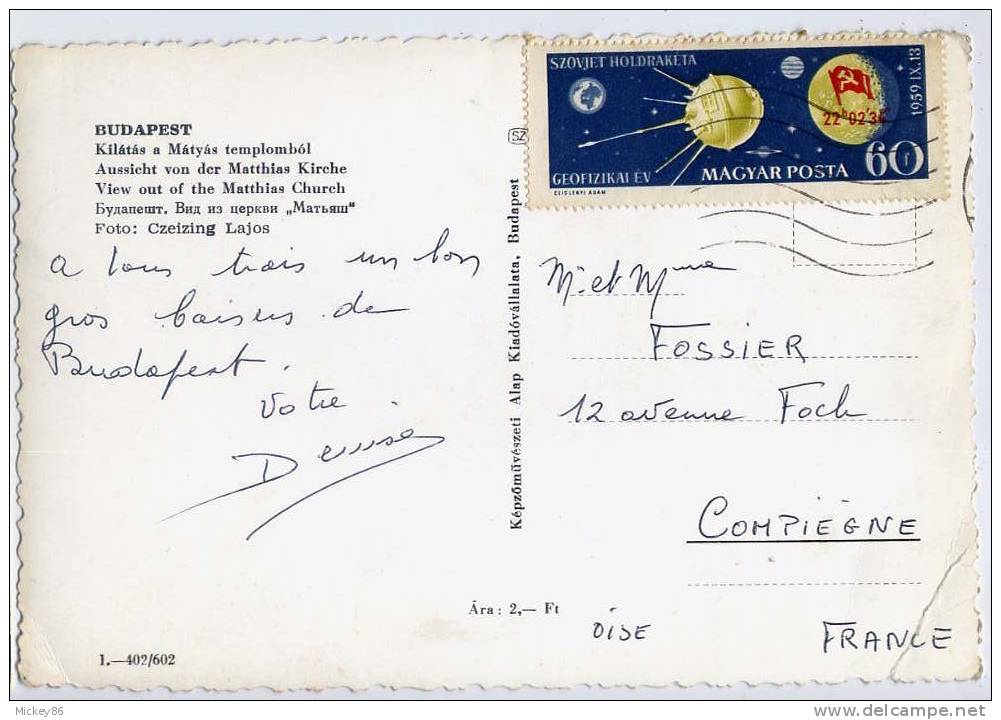 BUDAPEST
Kilátás a Mátyás templomból
Aussicht von der Matthias Kirche
View out of the Matthias Church
Будапешт. Вид из церкви „Матьяш"
Foto: Czeizing Lajos
a tous trois un bon
gros baisers de
Budapest.
Votre
Denise
1.—402/602
Ára: 2,— Ft
Képzőművészeti Alap Kiadóvállalata, Budapest
SZ
SZOVJET HOLDRAKÉTA
1959 IX.13
22h 02' 34"
GEOFIZIKAI ÉV
MAGYAR POSTA
60 f
CZIGLÉNYI ÁDÁM
Mr et Mme
FOSSIER
12 avenue Foch
COMPIÈGNE
OISE
FRANCE
Mickey86
delcampe.net